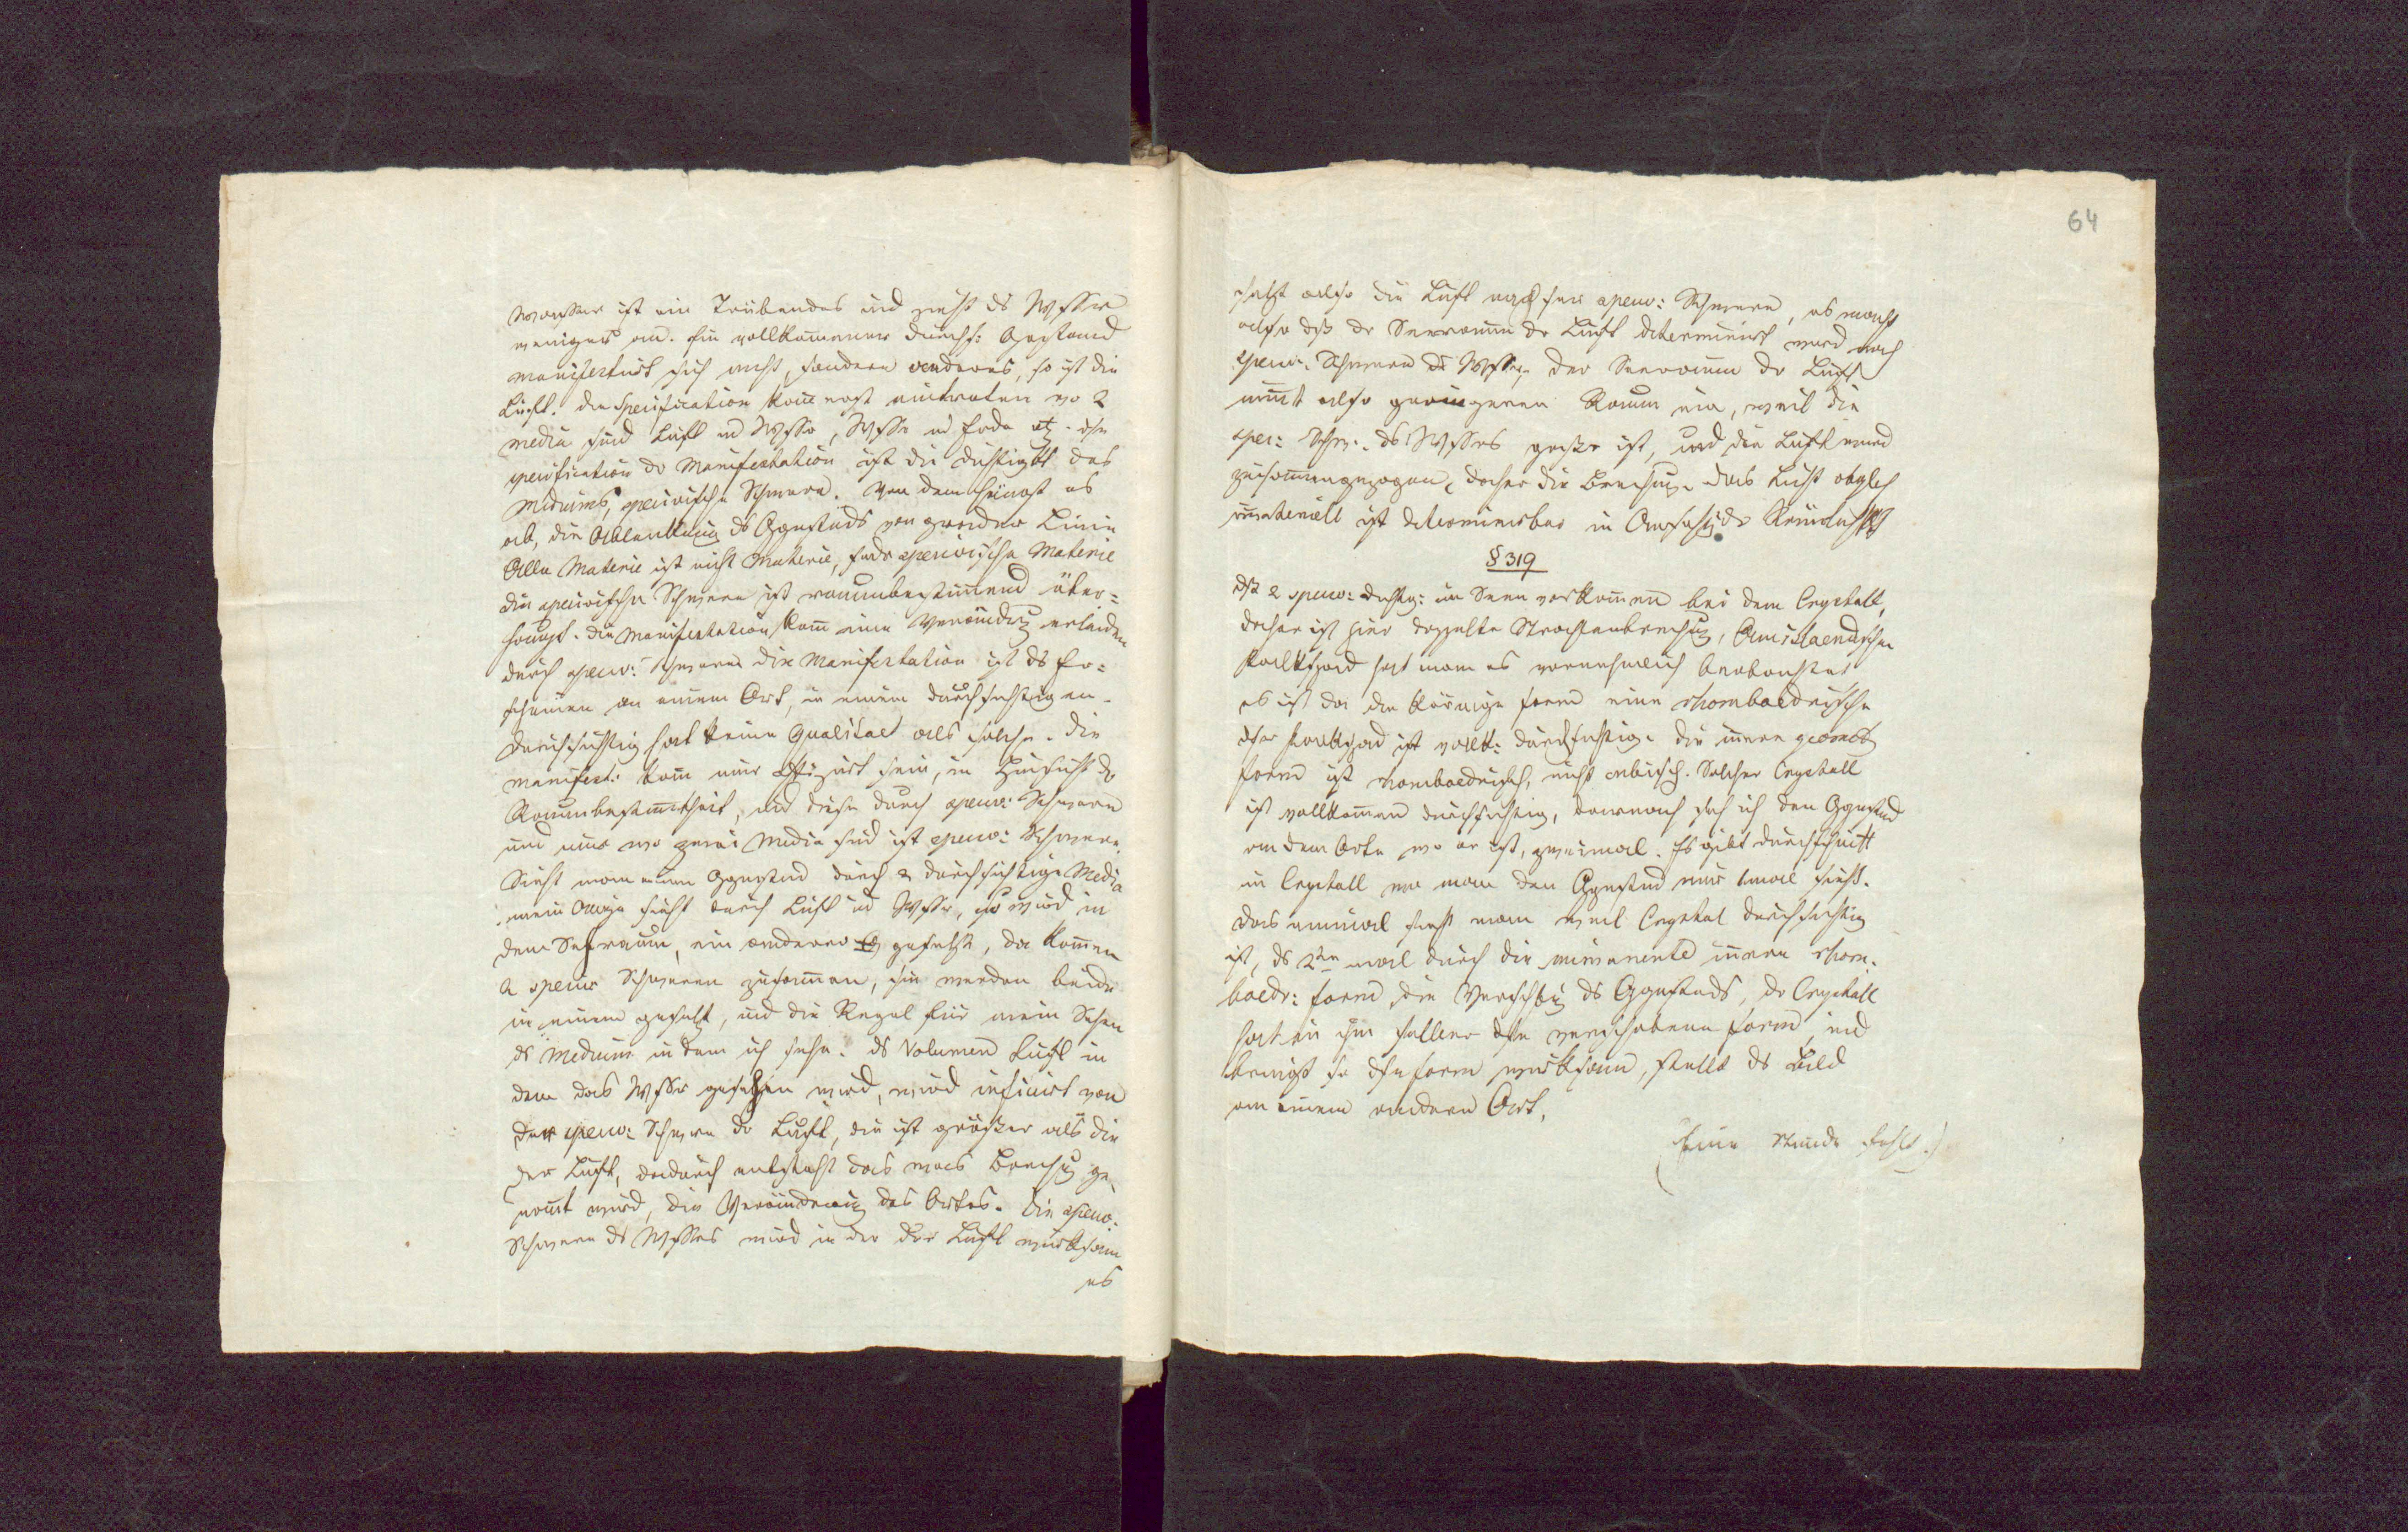 Wasser ist ein Trübendes und zieht ds Wsser
weniger an. Ein vollkommener durchs: Ggstand
manifestirt sich nicht, sondern anderes, so ist die
Luft. Die Specification kann erst eintreten wo 2
media sind Luft ud Wsser, Wsser ud Erde etz. die
specification dr Manifestation ist die Dichtigkt des
Mediums, specifische Schwere. Von dem hängt es
ab, die Ablenkung ds Ggnstands von grader Linie
Alle Materie ist nicht Materie, sondr specifische Materie
die specifische Schwere ist raumbestimmend über=
haupt. Die Manifestation kann eine Verändrg erleiden
durch specif: Schwere die Manifestation ist ds Er=
scheinen an einem Ort, in einem durchsichtigen.
Durchsichtig hat keine Qualitaet als solche. Die
manifest: kann nur afizirt sein, in Hinsicht dr
Raumbestimmtheit, und diese durch specif: Schwere
und nur wo zwei Media sind ist specif: Schwere.
Sieht man einen Ggnstand durch 2 durchsichtige Media
mein Auge sieht durch Luft ud Wsser, so wird in
dem Sehraum, ein anderer gesetzt, da kommen
2 specif Schweren zusammen, sie werden beide
in einem gesetzt, und die Regel für mein Sehen
ds Medium in dem ich sehe. ds Volumen Luft in
dem das Wsser gesehen wird, wird inficirt von
der specif: Schwere dr Luft, die ist größer als die
der Luft, dadurch entsteht das was Brechung ge
nannt wird, die Veränderung des Ortes. Die specif:
Schwere ds Wssers wird in der der Luft wirksam
es
64
setzt also die Luft nach sein specif: Schwere, es macht
also daß dr Seeraum dr Luft determinirt wird nach
specif. Schwere ds Wssers, der Seeraum dr Luft
nimmt also geringeren Raum ein, weil die
spec: Schw. ds Wssers größer ist, und die Luft wird
zusammengezogen, daher die Brechung. das Licht obgleich
immateriell ist determinirbar in Ansehg dr Räumlichkt
§ 319
Daß 2 specif: Dichtig: im Seen vorkommen bei dem Crystall,
daher ist hier doppelte Strahlenbrechung, Am islaendischen
Kalkspad hat man es vornehmlich beobachtet
es ist da die körnige Form eine rhomboedrische
dser Kalkspad ist vollk: durchsichtig. die innere geomet
Form ist rhomboedrisch, nicht cubisch. Solcher Crystall
ist vollkommen durchsichtig, darnach seh ich den Ggnstand
an dem Orte wo er ist, zweimal. Es gibt Durchschnitt
in Crystall wo man den Ggnstand nur 1mal sieht.
das einmal sieht man weil Crystal durchsichtig
ist, ds 2te mal durch die immanente innere rhom=
boedr: Form die Verschbg ds Ggnstands, dr Crystall
hat in ihr selber dse verschobene Form, und
bringt so dse Form wirksam, stellt ds Bild
an einem andern Ort.
(Eine Stunde fehlt.)